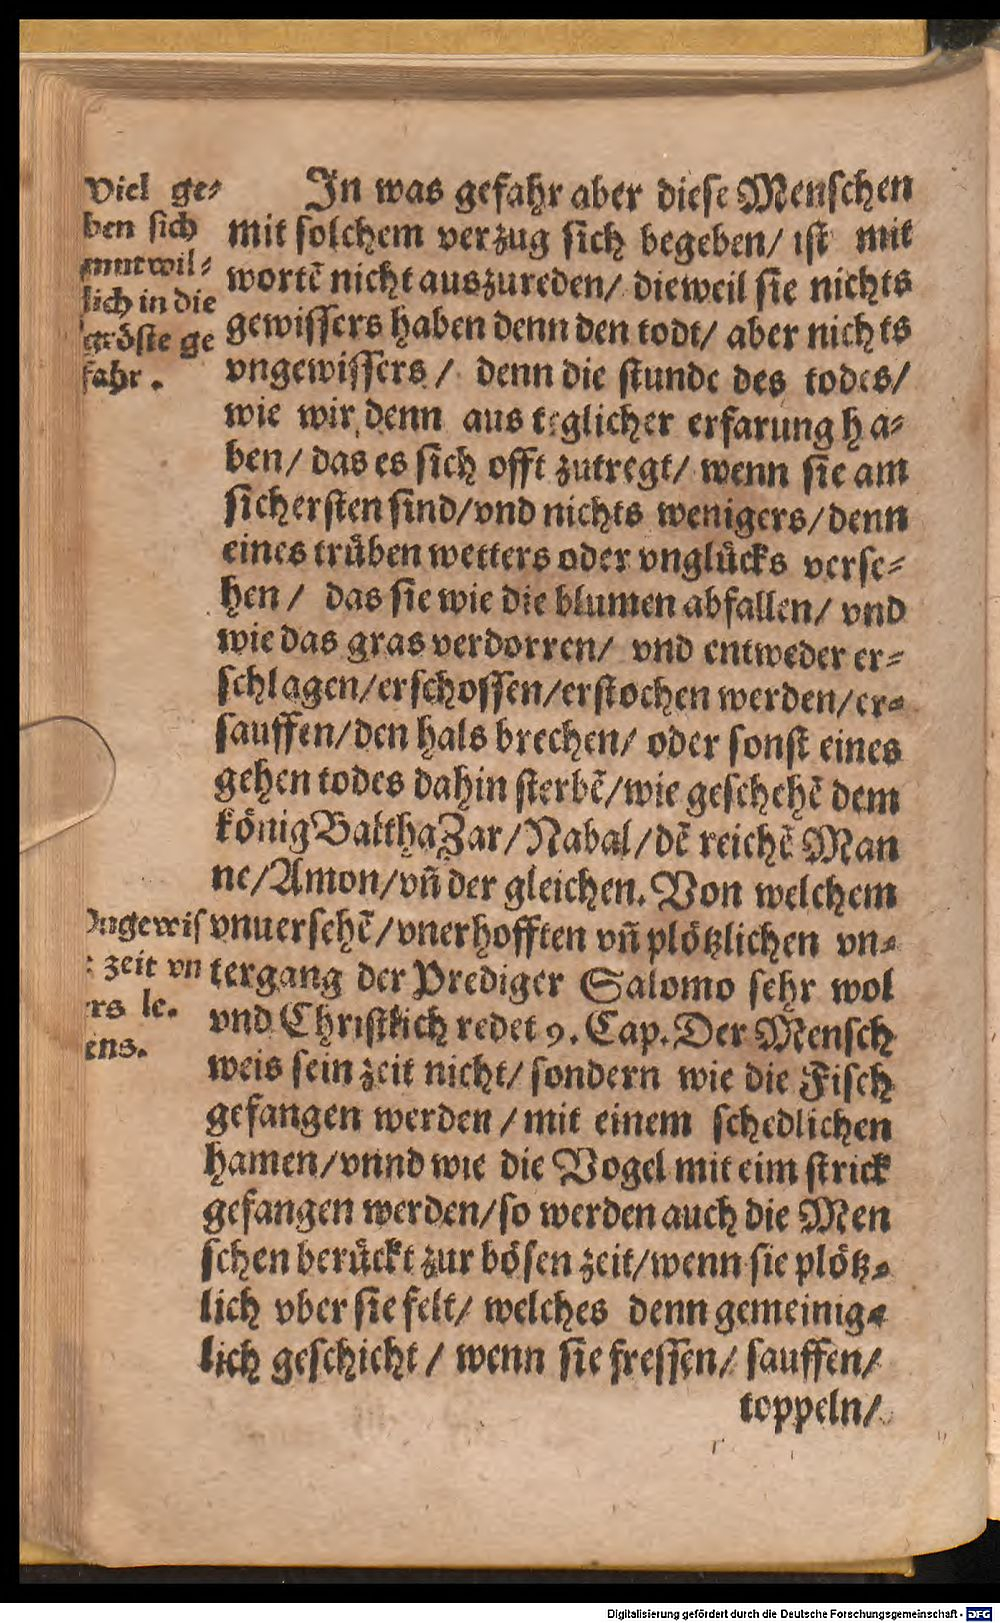 Viel ge-
ben sich
mutwil-
lich in die
gröste ge
fahr.
In was gefahr aber diese Menschen
mit solchem verzug sich begeben/ ist mit
wortē nicht auszureden/ dieweil sie nichts
gewissers haben denn den todt/ aber nichts
vngewissers/ denn die stunde des todes/
wie wir denn aus teglicher erfarung ha-
ben/ das es sich offt zutregt/ wenn sie am
sichersten sind/vnd nichts wenigers/denn
eines trüben wetters oder vnglücks verse-
hen/ das sie wie die blumen abfallen/ vnd
wie das gras verdorren/ vnd entweder er-
schlagen/erschossen/erstochen werden/er-
sauffen/den hals brechen/ oder sonst eines
gehen todes dahin sterbē/wie geschehē dem
könig BalthaZar/Nabal/dē reichē Man
ne/Amon/vñ der gleichen. Von welchem
vnuersehē/vnerhofften vñ plötzlichen vn-
tergang der Prediger Salomo sehr wol
vnd Christlich redet 9. Cap. Der Mensch
weis sein zeit nicht/ sondern wie die Fisch
gefangen werden/mit einem schedlichen
hamen/vnnd wie die Vogel mit eim strick
gefangen werden/so werden auch die Men
schen berückt zur bösen zeit/wenn sie plötz-
lich vber sie felt/ welches denn gemeinig-
lich geschicht/ wenn sie fressen/ sauffen/
toppeln/
Vngewis
zeit vn
ers le.
ens.
Digitalisierung gefördert durch die Deutsche Forschungsgemeinschaft - DFG